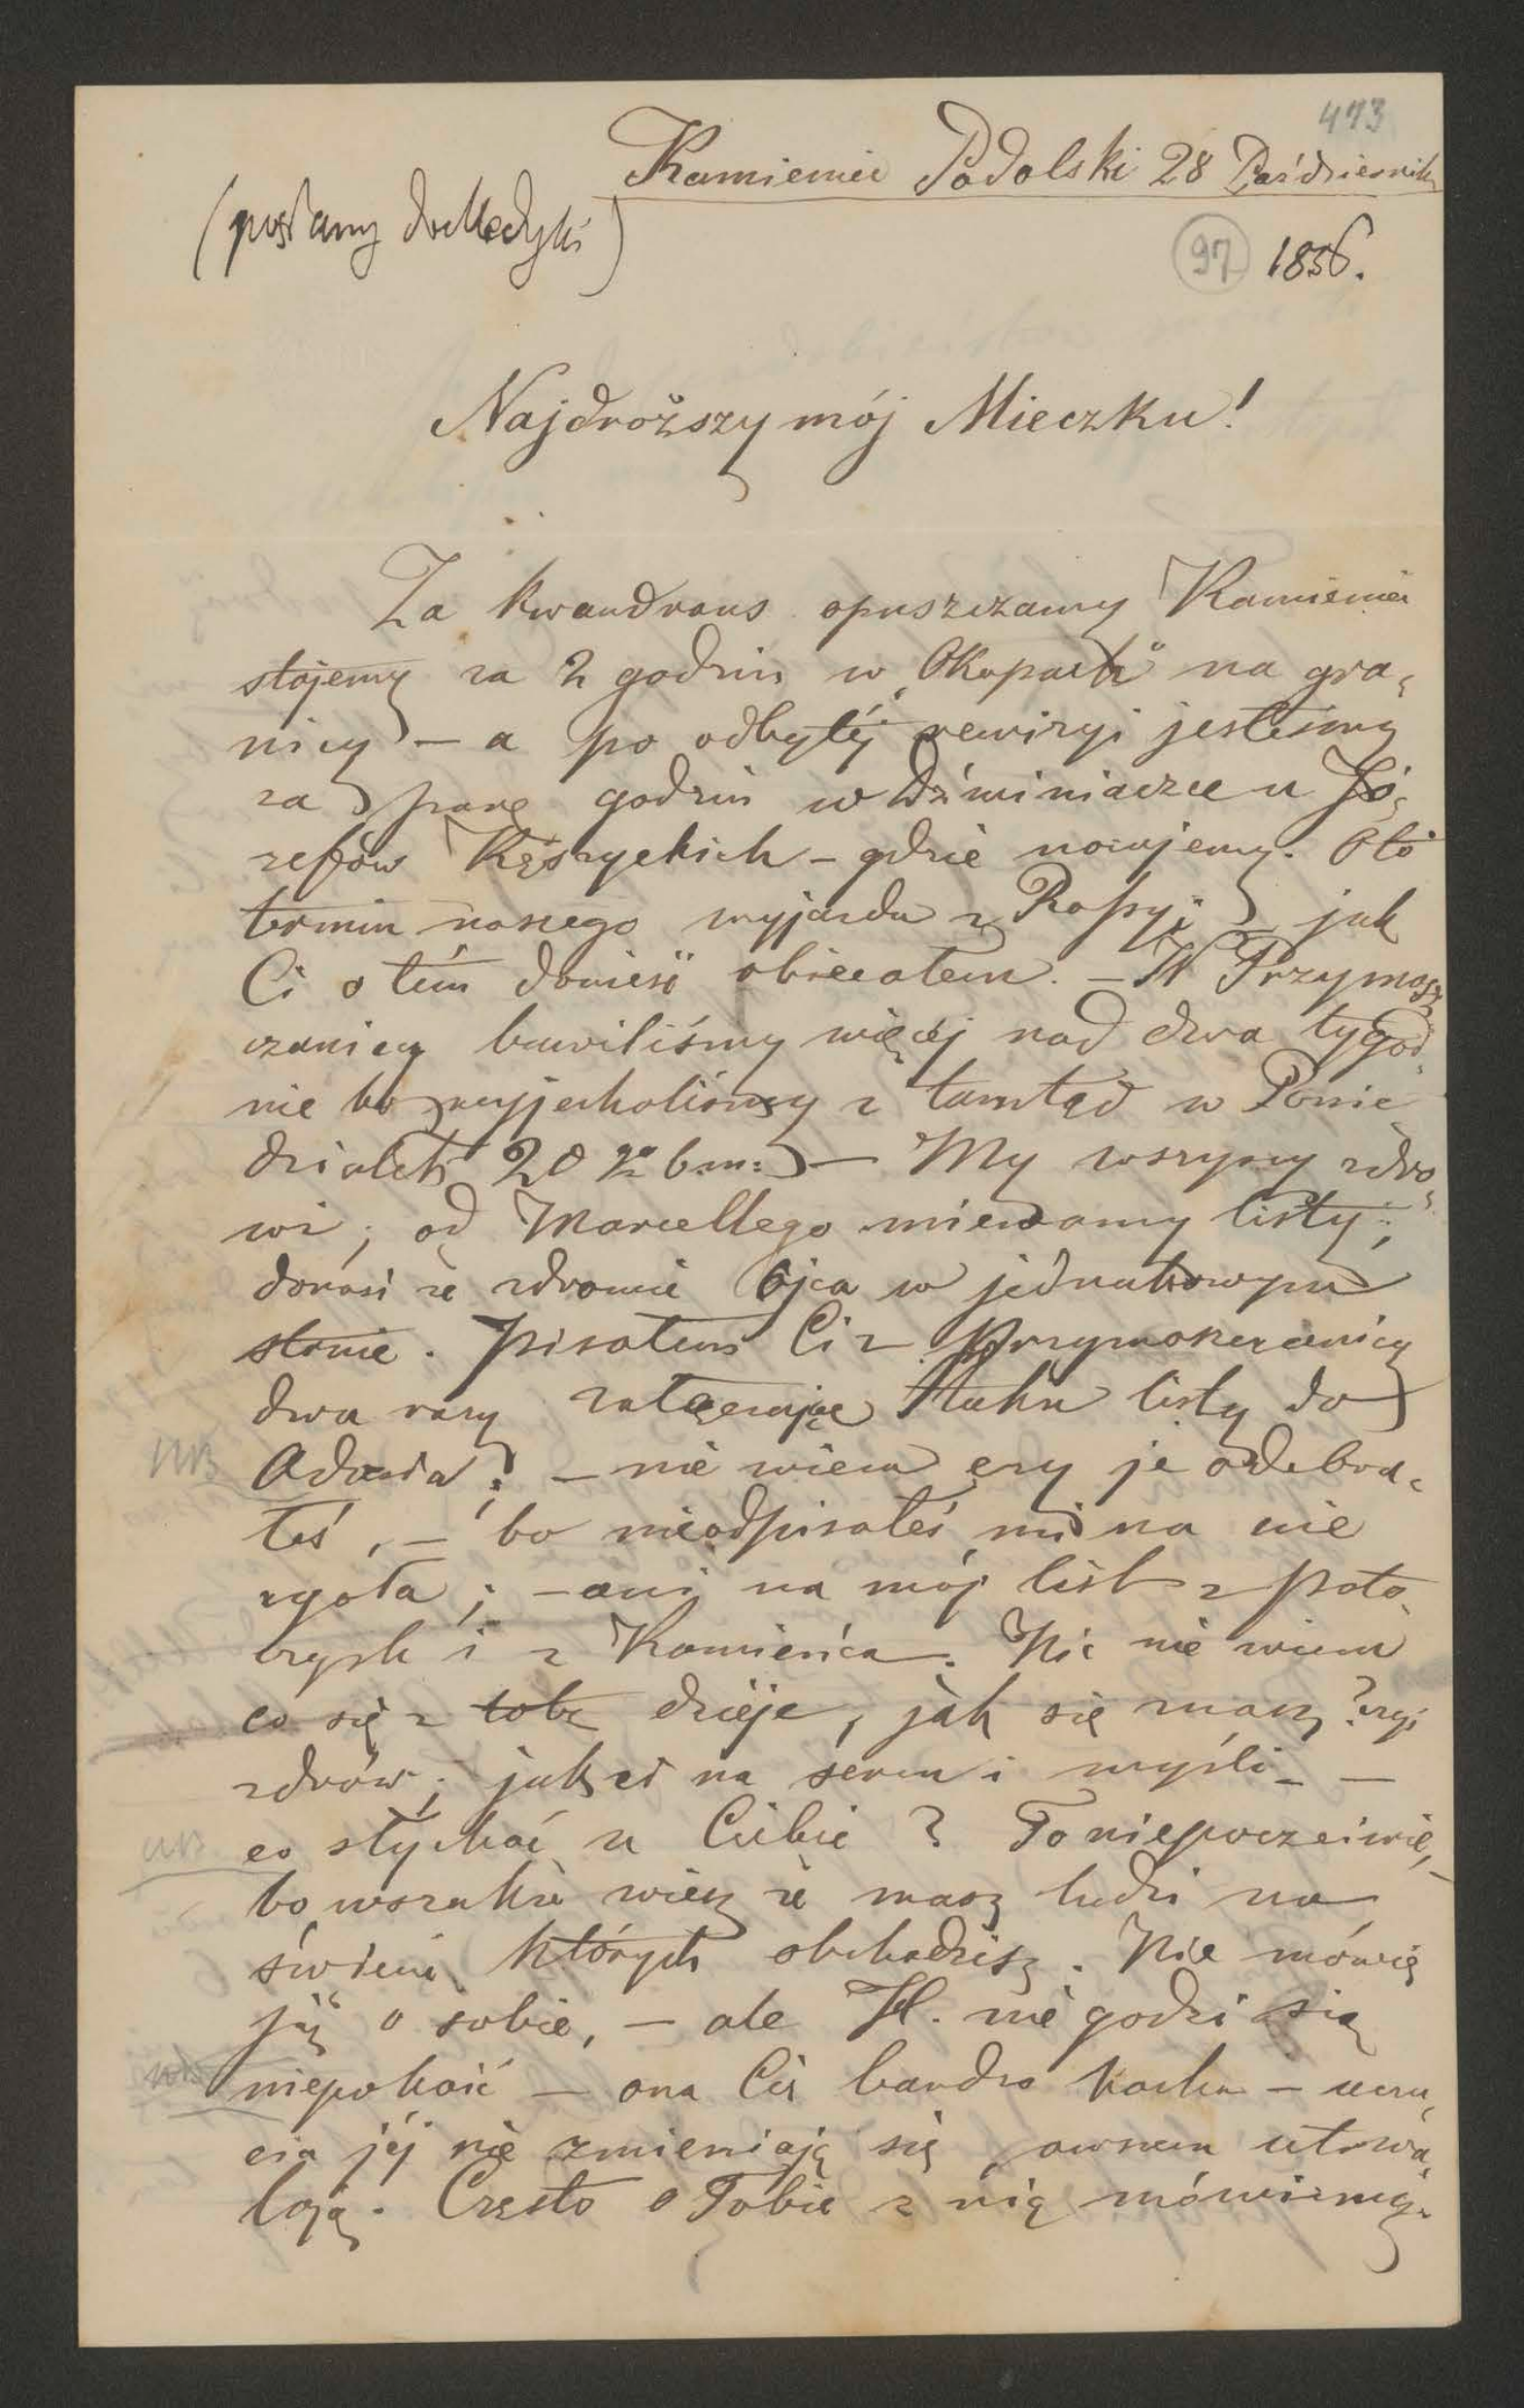 473
Kamieniec Podolski 28 Październik
(pisany do Medyki)
97 1856.
Najdroższy mój Mieczku!
Za kwandrans opuszczamy Kamieniec
stajemy za 2 godzin w „Okopach" na gra-
nicy — a po odbytéj rewizyi jesteśmy
za parę godzin w Dźwiniaczce u Jó-
zefów Kęszyckich — gdzie nocujemy. Oto
termin naszego wyjazdu z Rossyi, jak
Ci o tém donieść obiecałem. — W Przymosz-
czanicy bawiliśmy więcéj nad dwa tygod-
nie bo wyjechaliśmy z tamtąd w Ponie
działek 20 go b.m: — My wszyscy zdro-
wi; od Marcellego miewamy listy;
donosi że zdrowie Ojca w jednakowym
stanie. Pisałem Ci z Przymoszczanicy
dwa razy załączając listy do
NB Adasia; — nie wiem czy je odebra-
łeś, — bo nieodpisałeś mi na nie
zgoła; — ani na mój list z Poto-
i z Kamieńca. Nic nie wiem
co się z tobą dzieje, jak się masz? czyś
zdrów; jak ci na sercu i myśli — —
NB co słychać u Ciebie? To niepoczciwie,
bo wszakże wiesz że masz ludzi na
świecie których obchodzisz. Nie mówię
już o sobie, — ale H. nie godzi się
NB niepokoić — ona Cię bardzo kocha — uczu-
cia jéj nie zmieniają się, owszem utrwa-
lają. Często o Tobie z nią mówiemy.